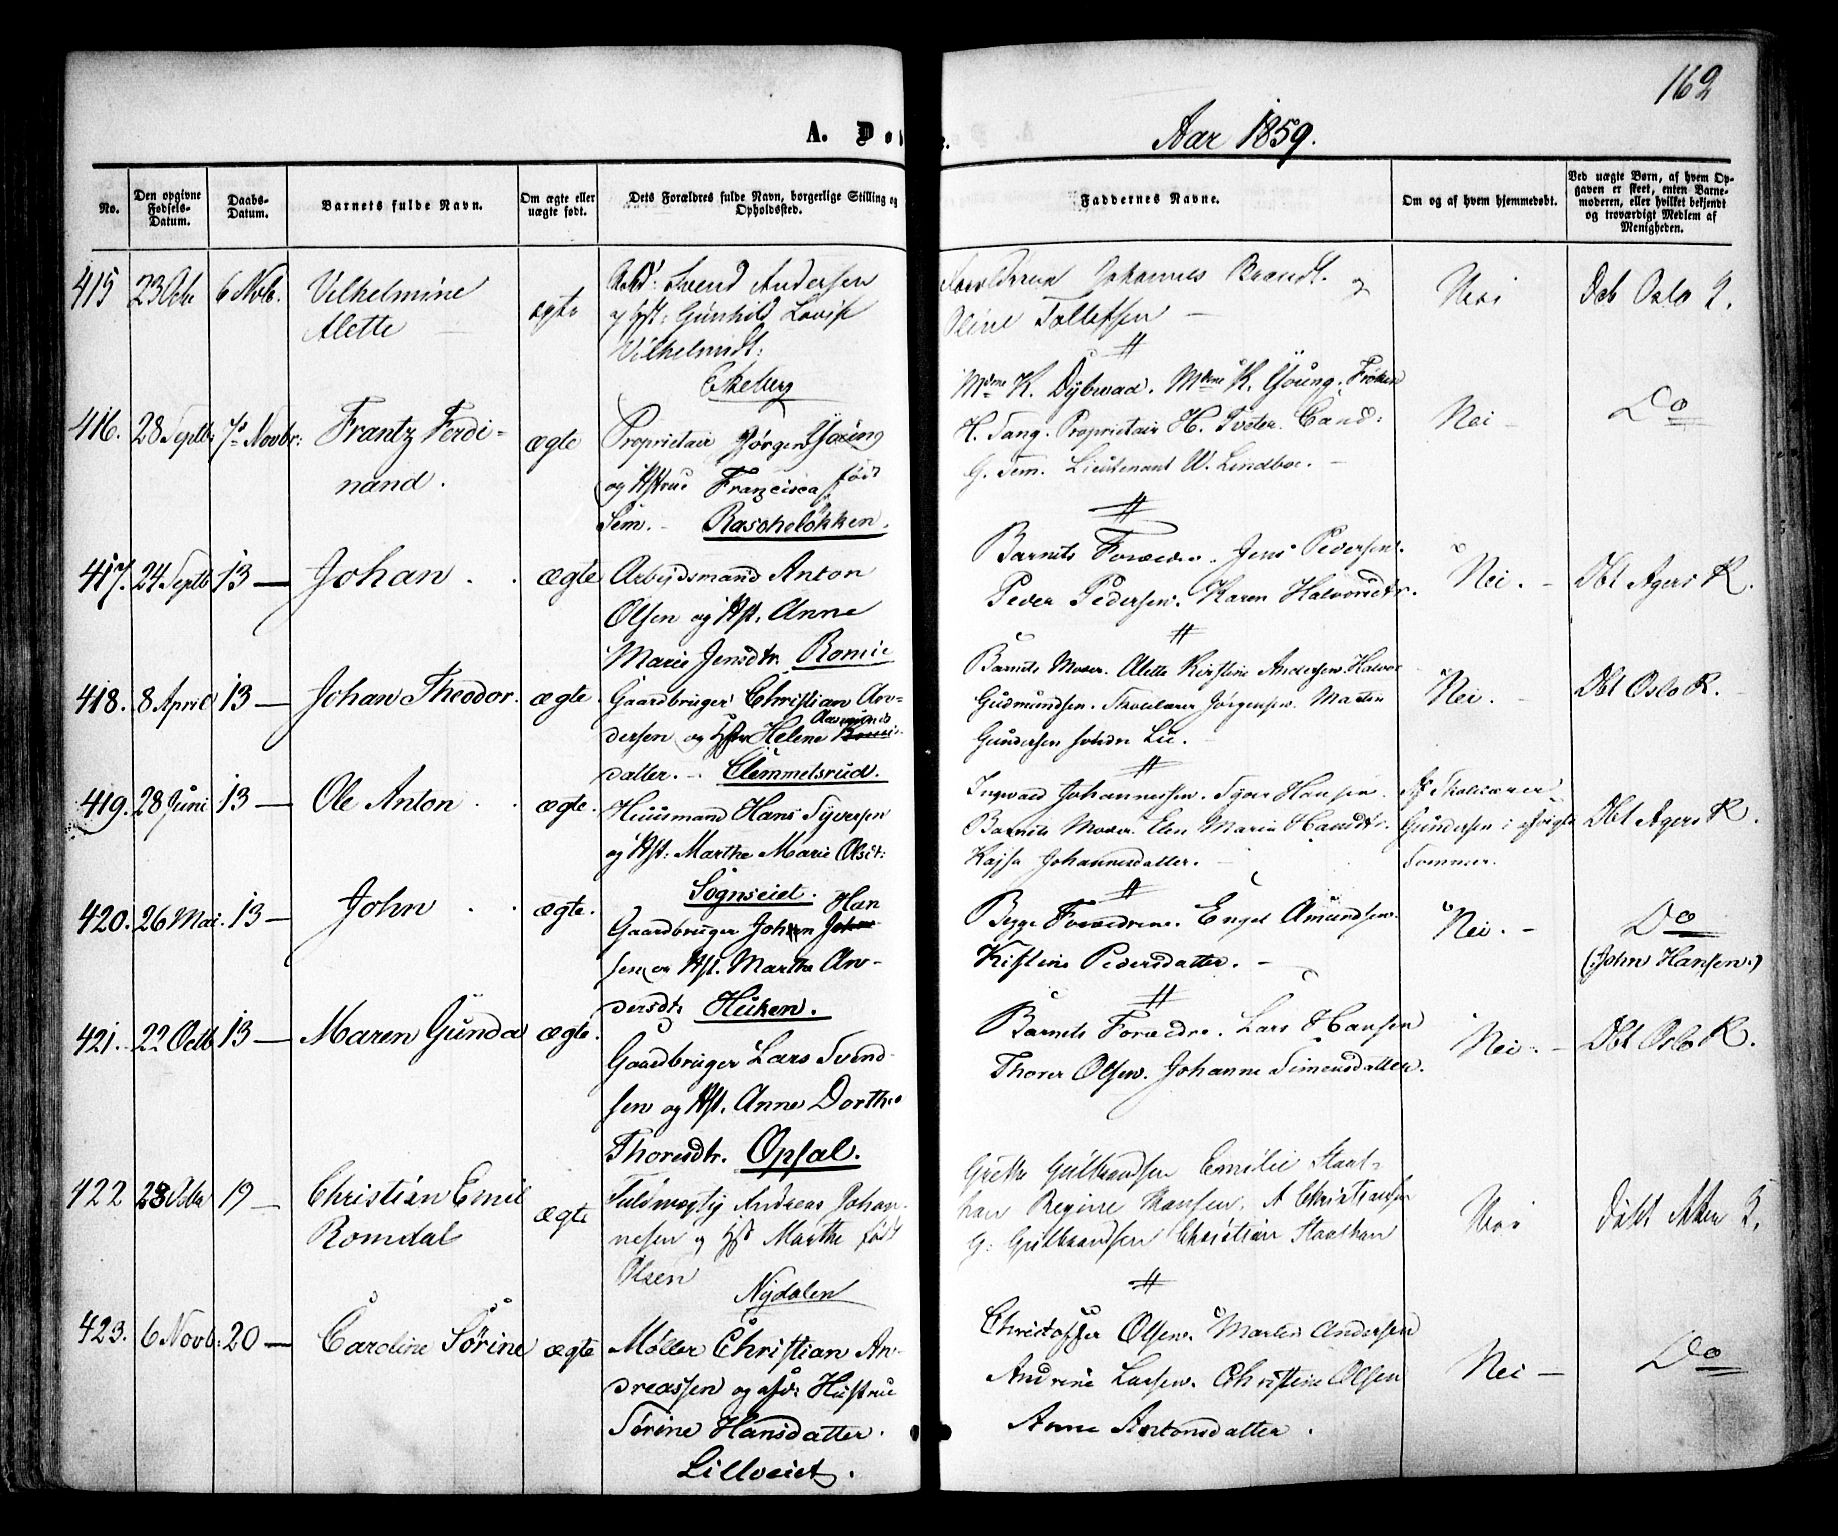 162
A. Dø
Aar 1859.
No.
Den opgivne Fødsels-Datum.
Daabs-Datum.
Barnets fulde Navn.
Om ægte eller uægte født.
Dets Forældres fulde Navn, borgerlige Stilling og Opholdssted.
Faddernes Navne.
Om og af hvem hjemmedøbt.
Ved uægte Børn, af hvem Opgaven er skeet, enten Barnemoderen, eller hvilket bekjendt og troværdigt Medlem af Menigheden.
415 23 Octr 6 Novb. Vilhelmine
Alette
ægte
Arbd: Svend Andersen
og Hst: Gunhild Lovise
Vilhelmsdt:
Ekeberg
Forældrene Johannes Brandt. og
Oline Tollefsen —
Nei
Døb Oslo K.
416. 28 Septb: 7de Novbr: Frantz Ferdi-
nand.
ægte
Proprietair Jørgen Young
og Hstrue Francisca født
Sem. - Rascheløkken.
Mdme K. Dybwad. Mdme K. Young. Frøken
H. Fang. Proprietair H. Tveter. Cand:
G. Sem. Lieutenant W. Lindboe. —
Nei —
Do
417. 24 Septb 13 — Johan . .
ægte
Arbeidsmand Anton
Olsen og Hst. Anne
Marie Jensdtr. Romii
Barnets Forældre. Jens Pedersen.
Peder Pedersen. Karen Halvorsdtr.
Nei. —
Dbt Agers K.
418. 8 April 13 — Johan Theodor.
ægte.
Gaardbruger Christian An-
dersen og Hst. Helene Rasmus
datter. — Clemmetsrud.
Barnets Moder. Alette Kirstine Andersen Halvor
Gudmundsen. Skolelærer Jørgensen. Martin
Gundersen søndre Lie. —
Nei. —
Dbt Oslo K.
419. 28 Juni 13 — Ole Anton . .
ægte.
Huusmand Hans Syversen
og Hst: Marthe Marie Olsdt:
Sognseiet.
Ingvald Johannessen. Syver Hansen.
Barnets Moder. Elen Marie Hansdtr.
Kajsa Johannesdatter. —
Af Skolelærer
Gundersen i afvigte
Sommer.
Dbt Agers K.
420. 26 Mai. 13 — John . .
ægte.
Han
Gaardbruger John
sen og Hst. Marthe An-
dersdt. Huken.
Begge Forældrene. Engel Amundsen.
Kistine Pedersdatter. —
Nei. —
Do
(John Hansen.)
421. 22 Octb 13 — Maren Gunda
ægte.
Gaardbruger Lars Svend-
sen og Hst. Anne Dorthe
Thoresdtr. Opsal.
Barnets Forældre. Lars Hansen
Thorer Olsen. Johanne Simensdatter.
Nei. —
Dbt Oslo K.
422 28 Octbr 19 — Christian Emil
Romdal
ægte
Fuldmægtig Andreas Johan
nesen og Hst Marthe født
Olsen
Nydalen
Grethe Gulbrandsen Emilie Staat-
han Regine Hansen. A Christiansen
G: Gulbrandsen Christian Staathan
Nei
Døbt Aker K.
423. 6 Novb: 20 — Caroline Sørine
ægte
Møller Christian An-
dreassen og Hustrue
Sørine Hansdatter.
Lilloeiet.
Christopher Olsen. Martin Andersen
Andrine Larsen. Christine Olsen
Anne Antonsdatter.
Nei —
Do